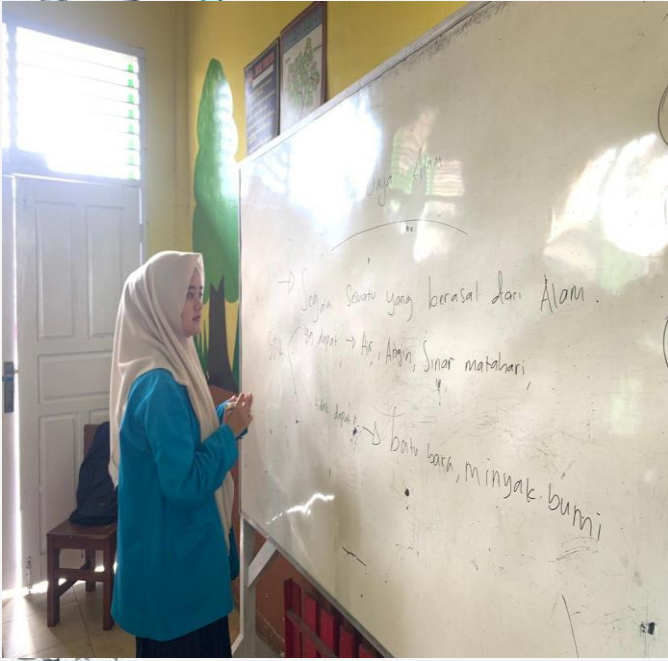 Daya Alam
→ Segala Sesuatu yang berasal dari Alam.
SDA
yg dapat → Air, Angin, Sinar matahari,
tidak dapat → batu bara, minyak bumi,